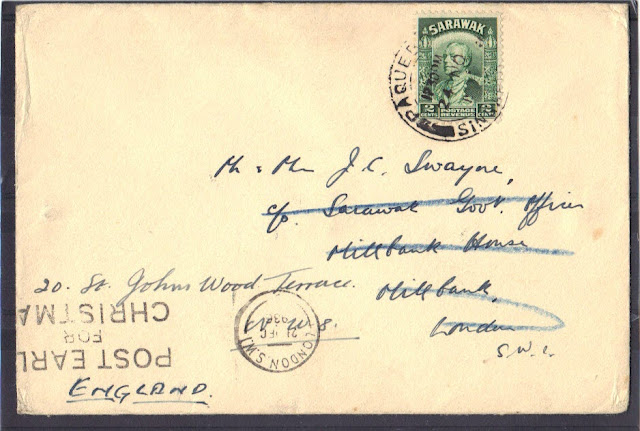 SARAWAK
2 CENTS POSTAGE REVENUE 2 CENTS
PAQUEB
Mr & Mrs J.C. Swayne,
c/o. Sarawak Govt. Offices
Millbank House
Millbank,
London
S.W.1.
20. St. Johns Wood Terrace.
N.W.8.
ENGLAND.
LONDON S.W.1
POST EARL
FOR
CHRISTMA